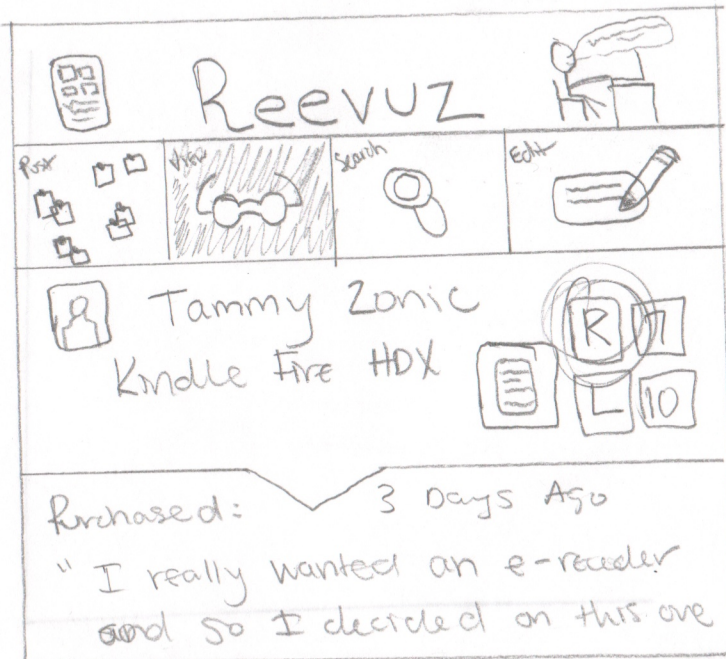 Reevuz
Post
View
Search
Edit
Tammy Zonic
R 7
Kindle Fire HDX
L 10
Purchased: 3 Days Ago
" I really wanted an e-reader
and so I decided on this one